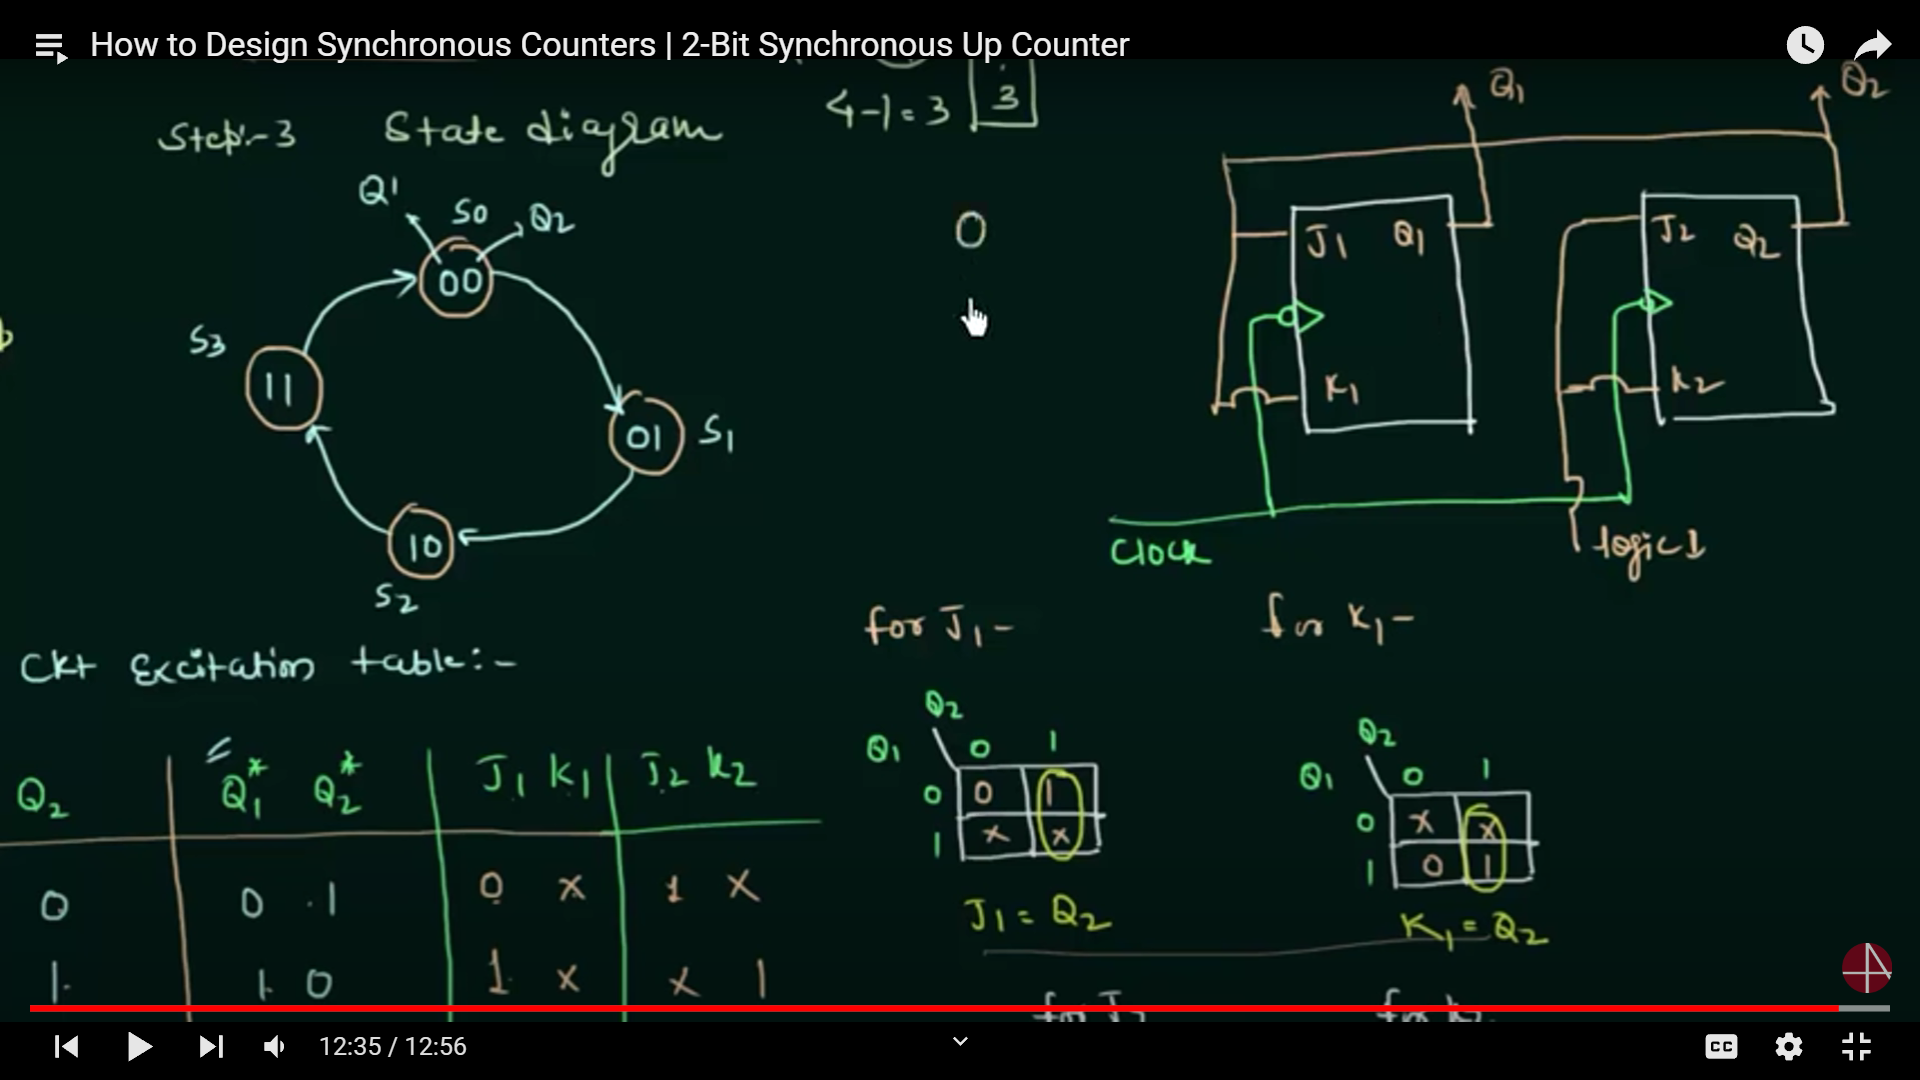 How to Design Synchronous Counters | 2-Bit Synchronous Up Counter
Step:-3 State diagram
4-1=3 3
Q1 S0 Q2
00
S3
11
01 S1
10
S2
0
Q1 Q2
J1 Q1
K1
J2 Q2
K2
Clock
logic 1
Ckt Excitation table:-
Q2 Q1* Q2* J1 K1 J2 K2
0 0 1 0 x 1 x
1 1 0 1 x x 1
for J1-
Q2
Q1 0 1
0 0 1
1 x x
J1 = Q2
for K1-
Q2
Q1 0 1
0 x x
1 0 1
K1 = Q2
12:35 / 12:56
CC